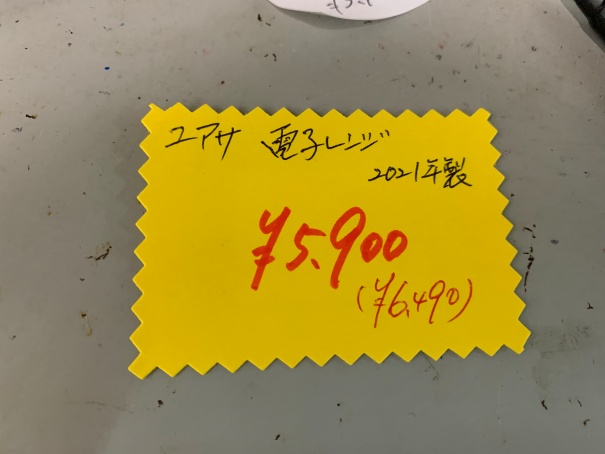 ユアサ 電子レンジ
2021年製
¥5,900
(¥6,490)